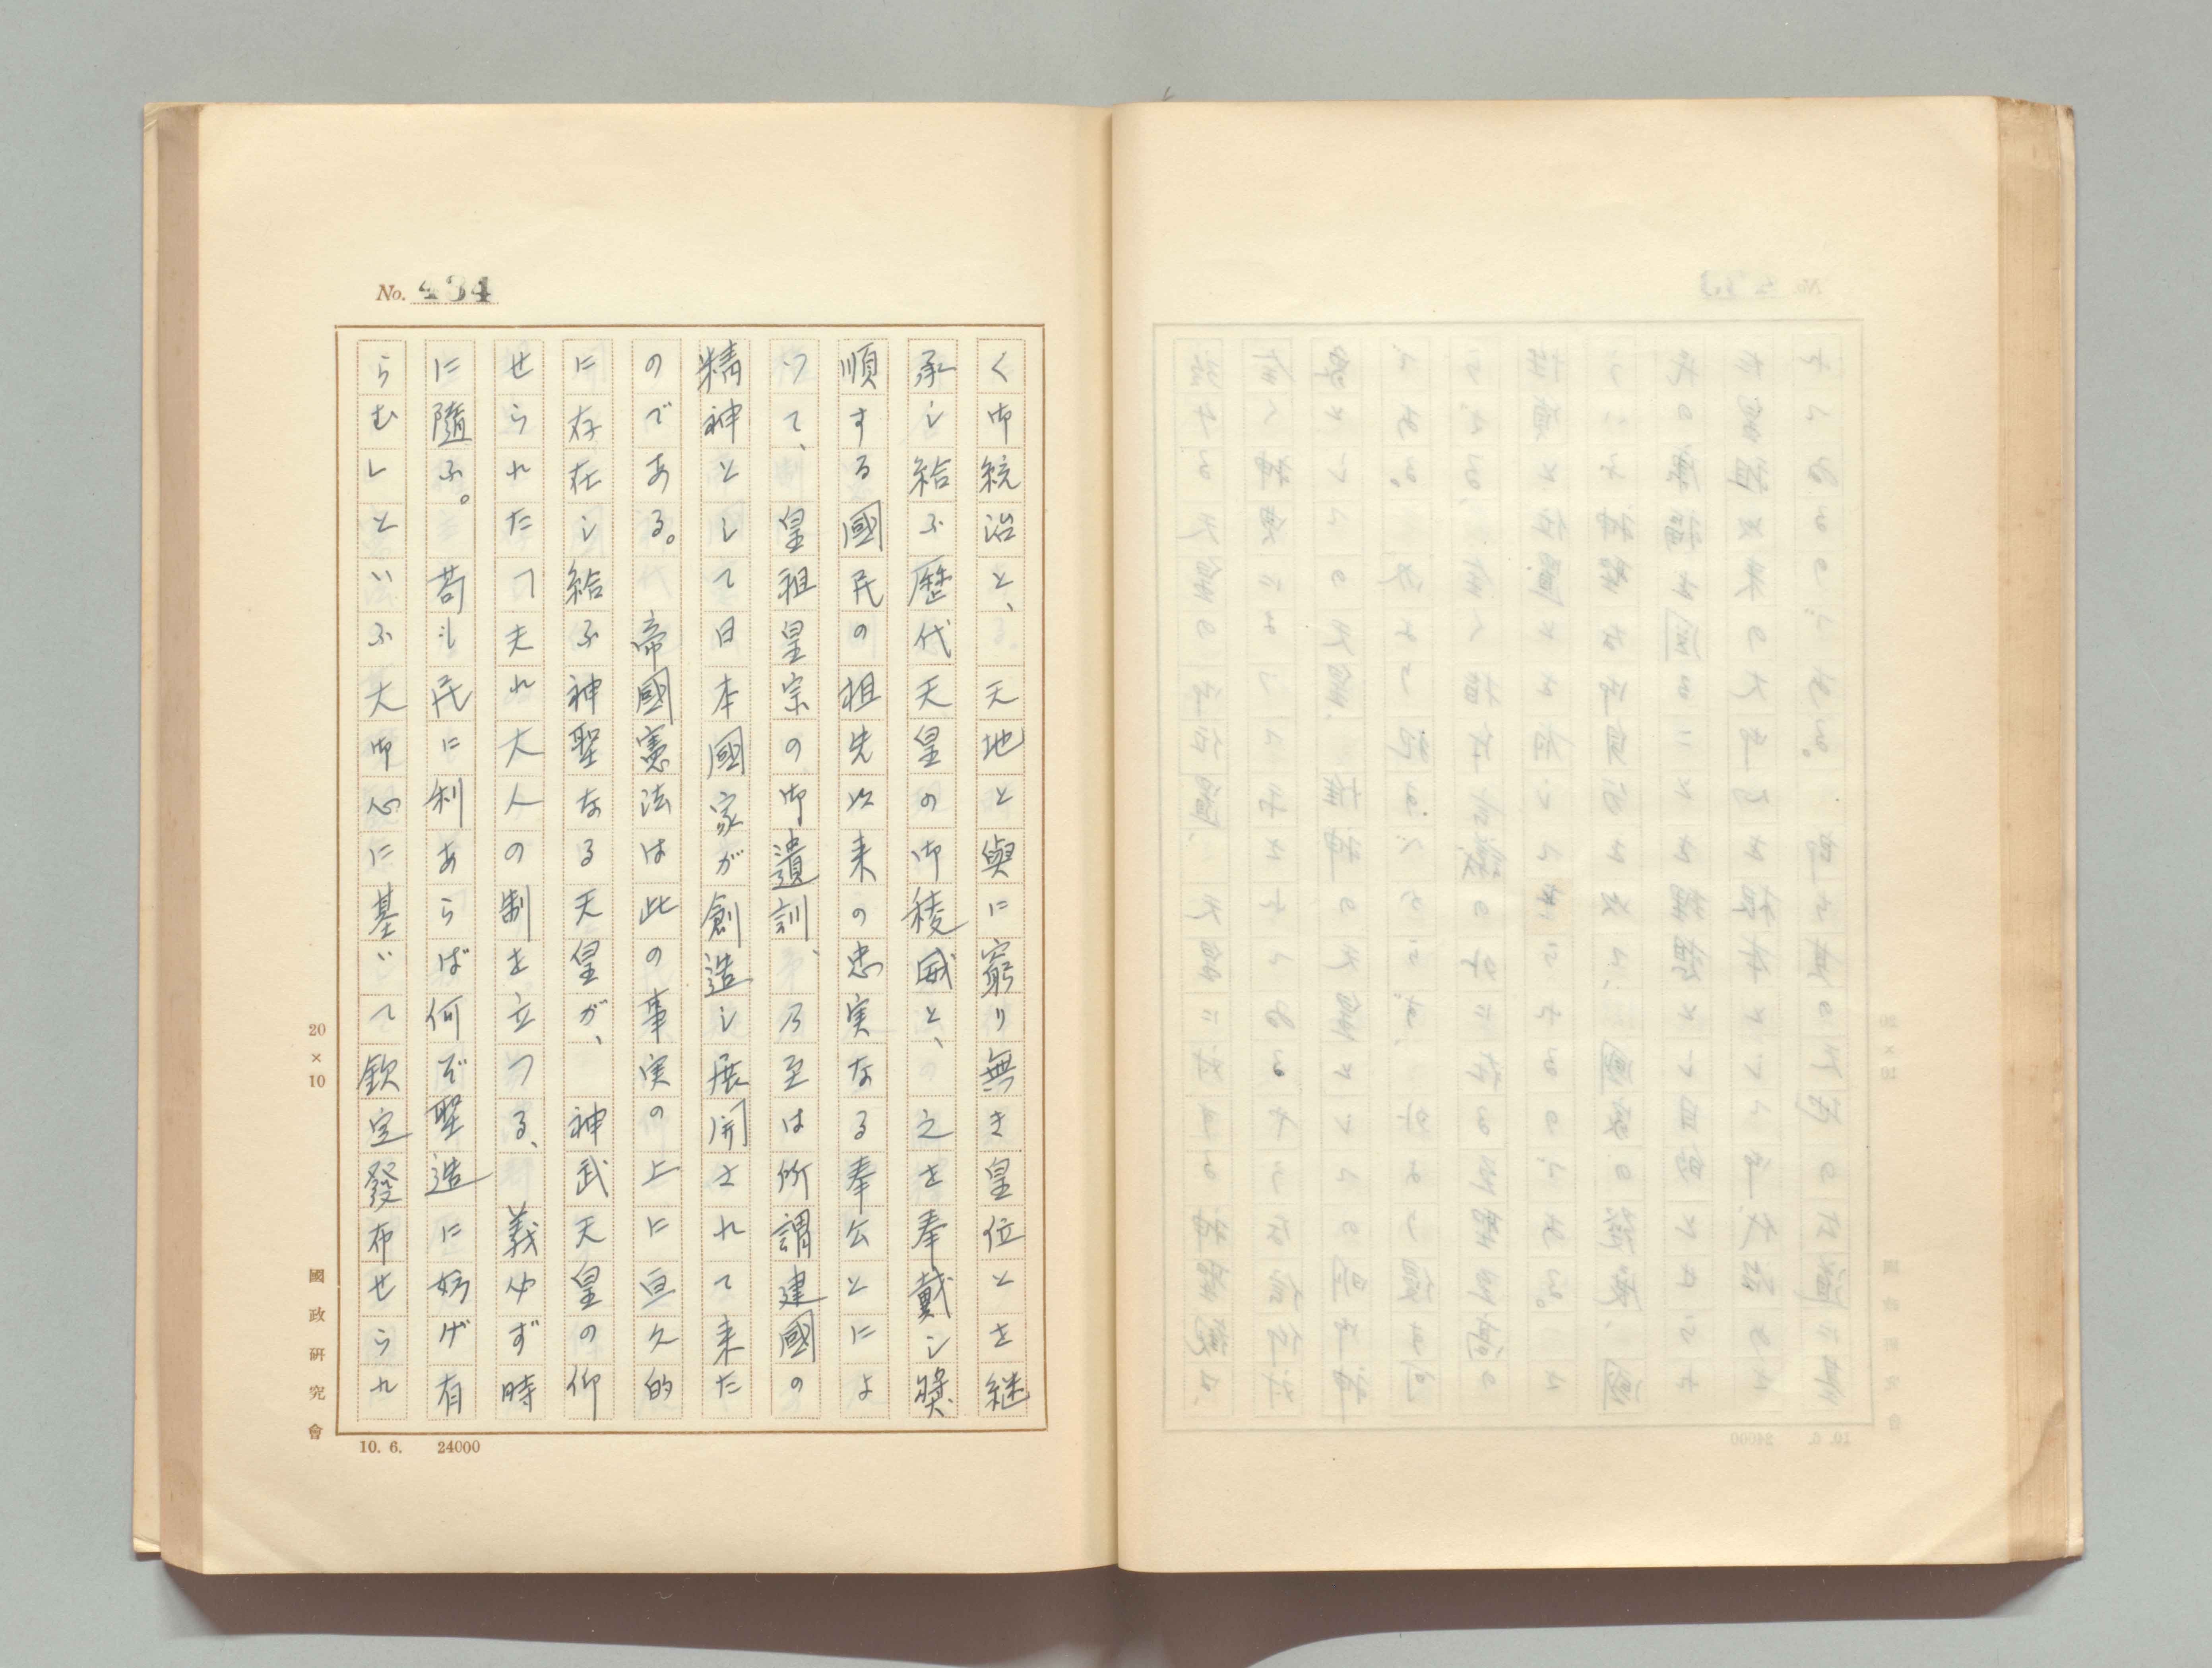 No. 434
く御統治と、天地と與に窮り無き皇位とを継
承し給ふ歷代天皇の御稜威と、之を奉戴し奬
順する國民の祖先以来の忠実なる奉公とによ
つて、皇祖皇宗の御遺訓、乃至は所謂建國の
精神として日本國家が創造し展開されて来た
のである。帝國憲法は此の事実の上に亘久的
に存在し給ふ神聖なる天皇が、神武天皇の仰
せられたつ夫れ大人の制を立つる、義必ず時
に隨ふ。苟も民に利あらば何ぞ聖造に妨げ有
らむしといふ大御心に基いて欽定發布せられ
20×10
國政研究會
10. 6. 24000